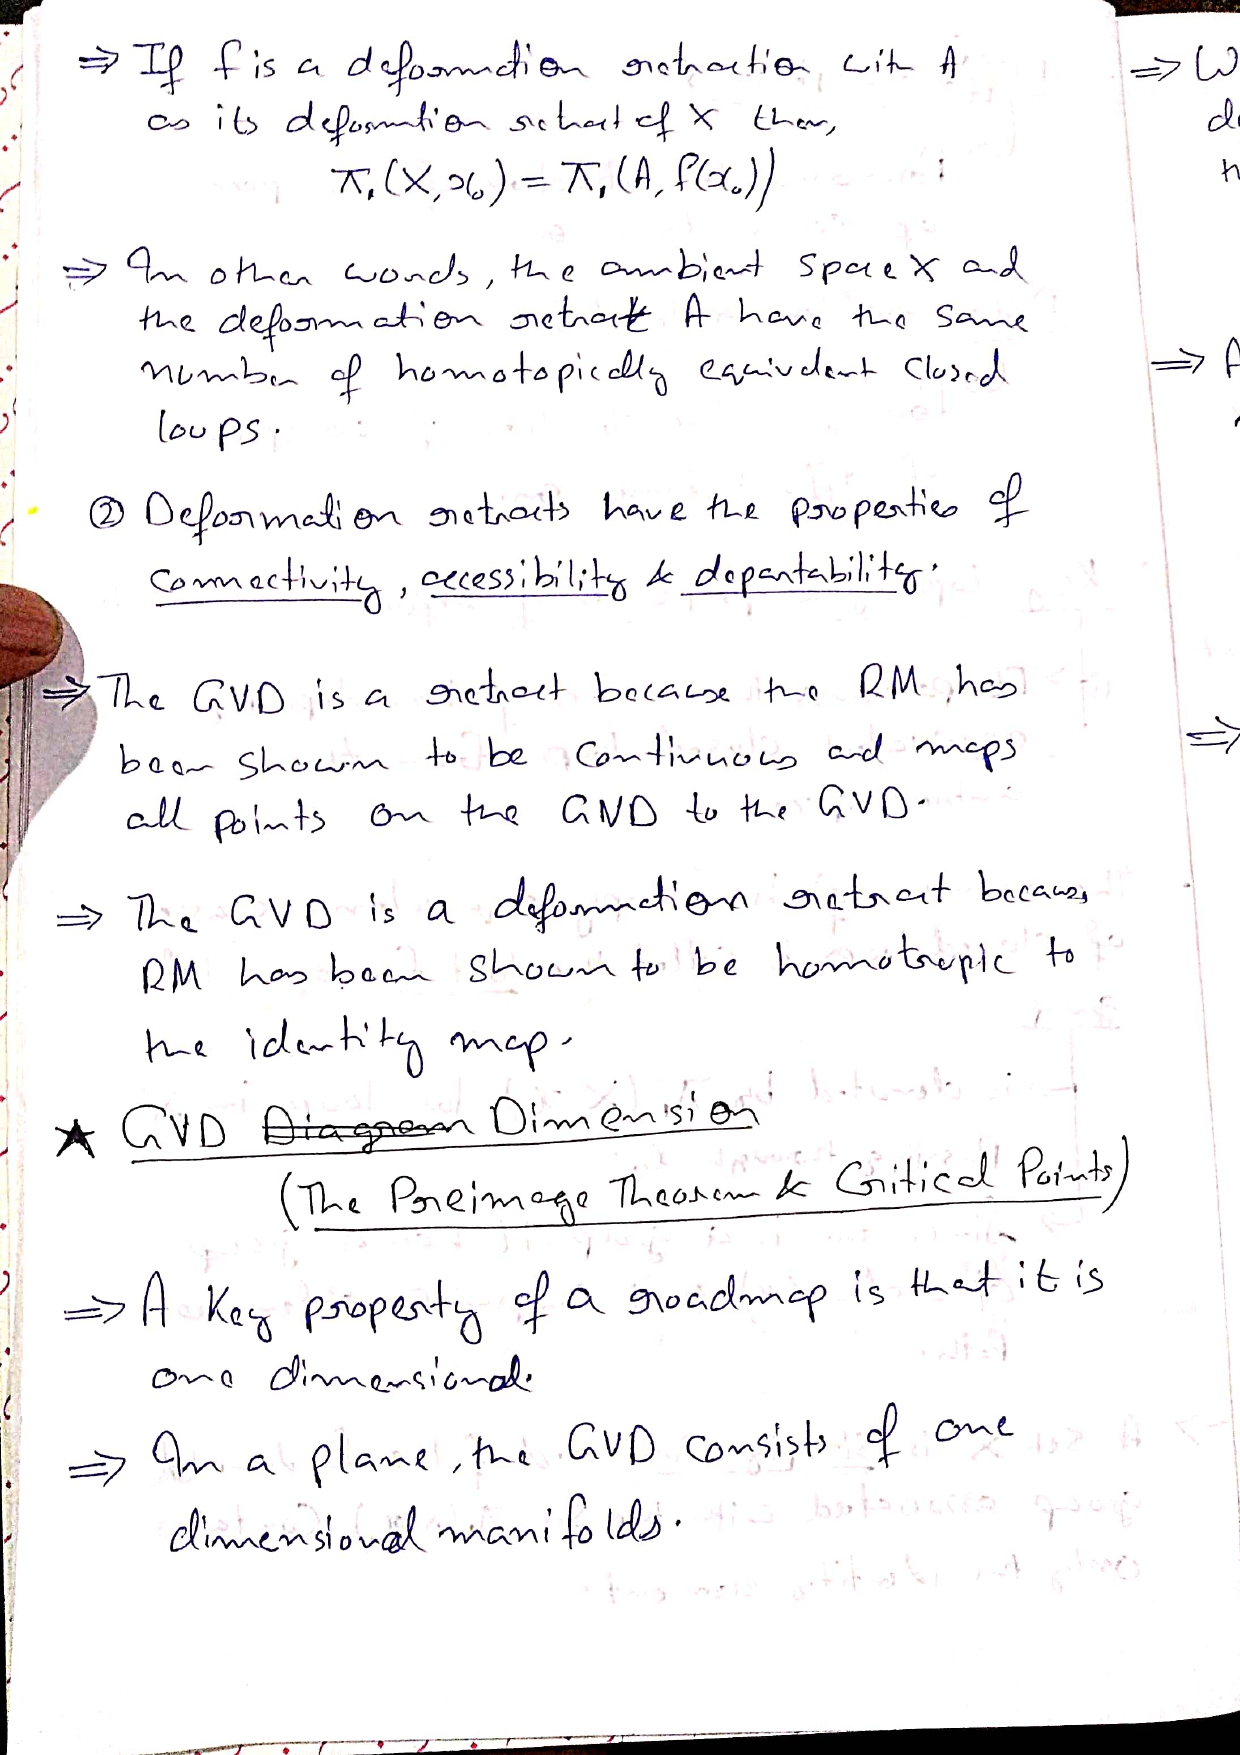 ⇒ If f is a deformation retraction with A
as its deformation retract of X then,
π₁(X, x₀) = π₁(A, f(x₀))
⇒ In other words, the ambient space X and
the deformation retract A have the same
number of homotopically equivalent closed
loops.
② Deformation retracts have the properties of
connectivity, accessibility & departability.
⇒ The GVD is a retract because the RM has
been shown to be continuous and maps
all points on the GVD to the GVD.
⇒ The GVD is a deformation retract because
RM has been shown to be homotropic to
the identity map.
★ GVD Diagram Dimension
(The Preimage Theorem & Critical Points)
⇒ A key property of a roadmap is that it is
one dimensional.
⇒ In a plane, the GVD consists of one
dimensional manifolds.
⇒ W
⇒ A
⇒